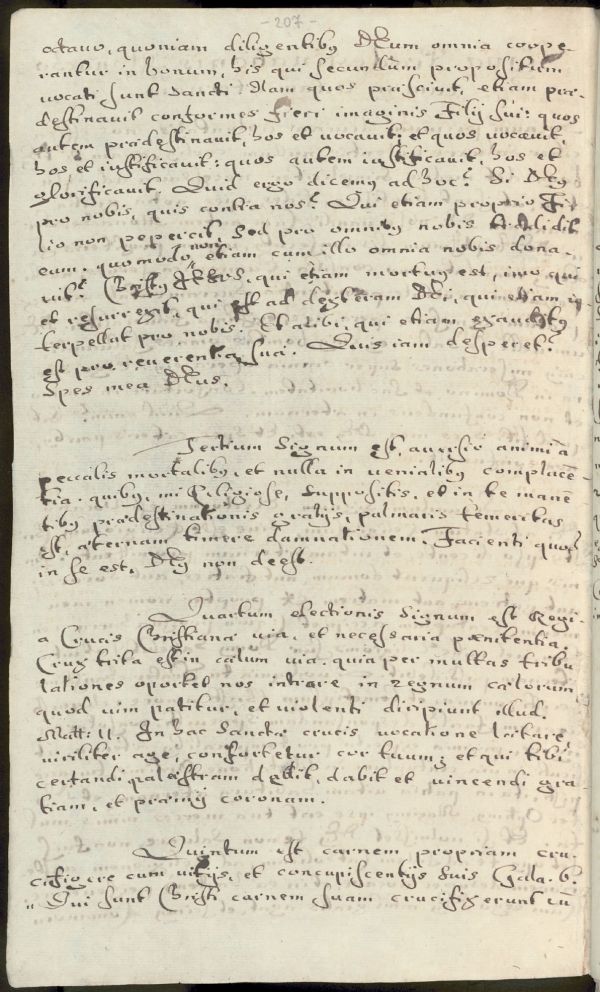 - 207 -
octauo, quoniam diligentibus DEum omnia coope-
rantur in bonum, his qui secundum propositum
uocati sunt Sancti. Nam quos praesciuit, etiam prae-
destinauit conformes fieri imaginis Filij sui: quos
autem praedestinauit, hos et uocauit; et quos uocauit,
hos et iustificauit: quos autem iustificauit, hos et
glorificauit. Quid ergo dicemus ad hoc? Si DEus
pro nobis, quis contra nos? Qui etiam proprio Fi-
lio non pepercit, sed pro omnibus nobis tradidit
eum. quomodo non etiam cum illo omnia nobis dona-
uit? Christus IESVS, qui etiam mortuus est, imo qui
et resurrexit, qui est ad dexteram DEi, qui etiam in
terpellat pro nobis. Et alibi, qui etiam exauditus
est pro reuerentia sua. Quis iam desperet?
Spes mea DEus.
Tertium Signum est, auersio animi à
peccatis mortalibus, et nulla in uenialibus complacẽ-
tia. quibus, mi Religiose, suppositis, et in te manẽ
tibus praedestinationis gratijs, palmaris temeritas
est, aeternam timere damnationem. Facienti quod
in se est, DEus non deest.
Quartum electionis Signum est Regi-
a Crucis Christiana uia, et necessaria paenitentia.
Crux trita est in caelum uia. quia per multas tribu
lationes oportet nos intrare in regnum caelorum,
quod uim patitur, et uiolenti diripiunt illud.
Matt: 11. In hac Sanctae crucis uocatione
uiriliter age, confortetur cor tuum; et qui tibi
certandi palaestram dedit, dabit et uincendi gra-
tiam, et praemij coronam.
Quintum est carnem propriam cru-
cifigere cum uitijs, et concupiscentijs suis Gala. 6.
,, Qui sunt Christi carnem suam crucifigerunt cũ